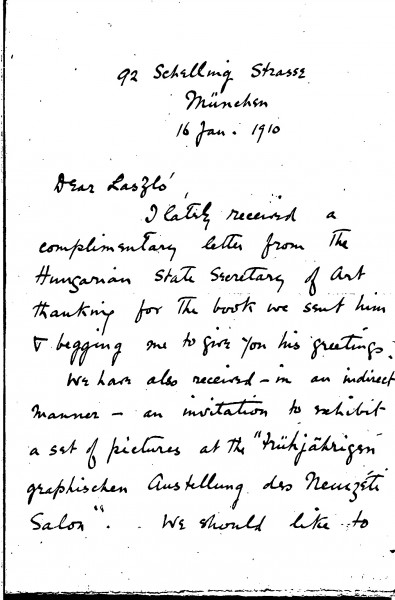 92 Schelling Strasse
München
16 Jan. 1910
Dear László,
I lately received a
complimentary letter from the
Hungarian State Secretary of Art
thanking for the book we sent him
& begging me to give you his greetings.
We have also received – in an indirect
manner – an invitation to exhibit
a set of pictures at the "Frühjährigen
graphischen Austellung des Nemzéti
Salon". We should like to